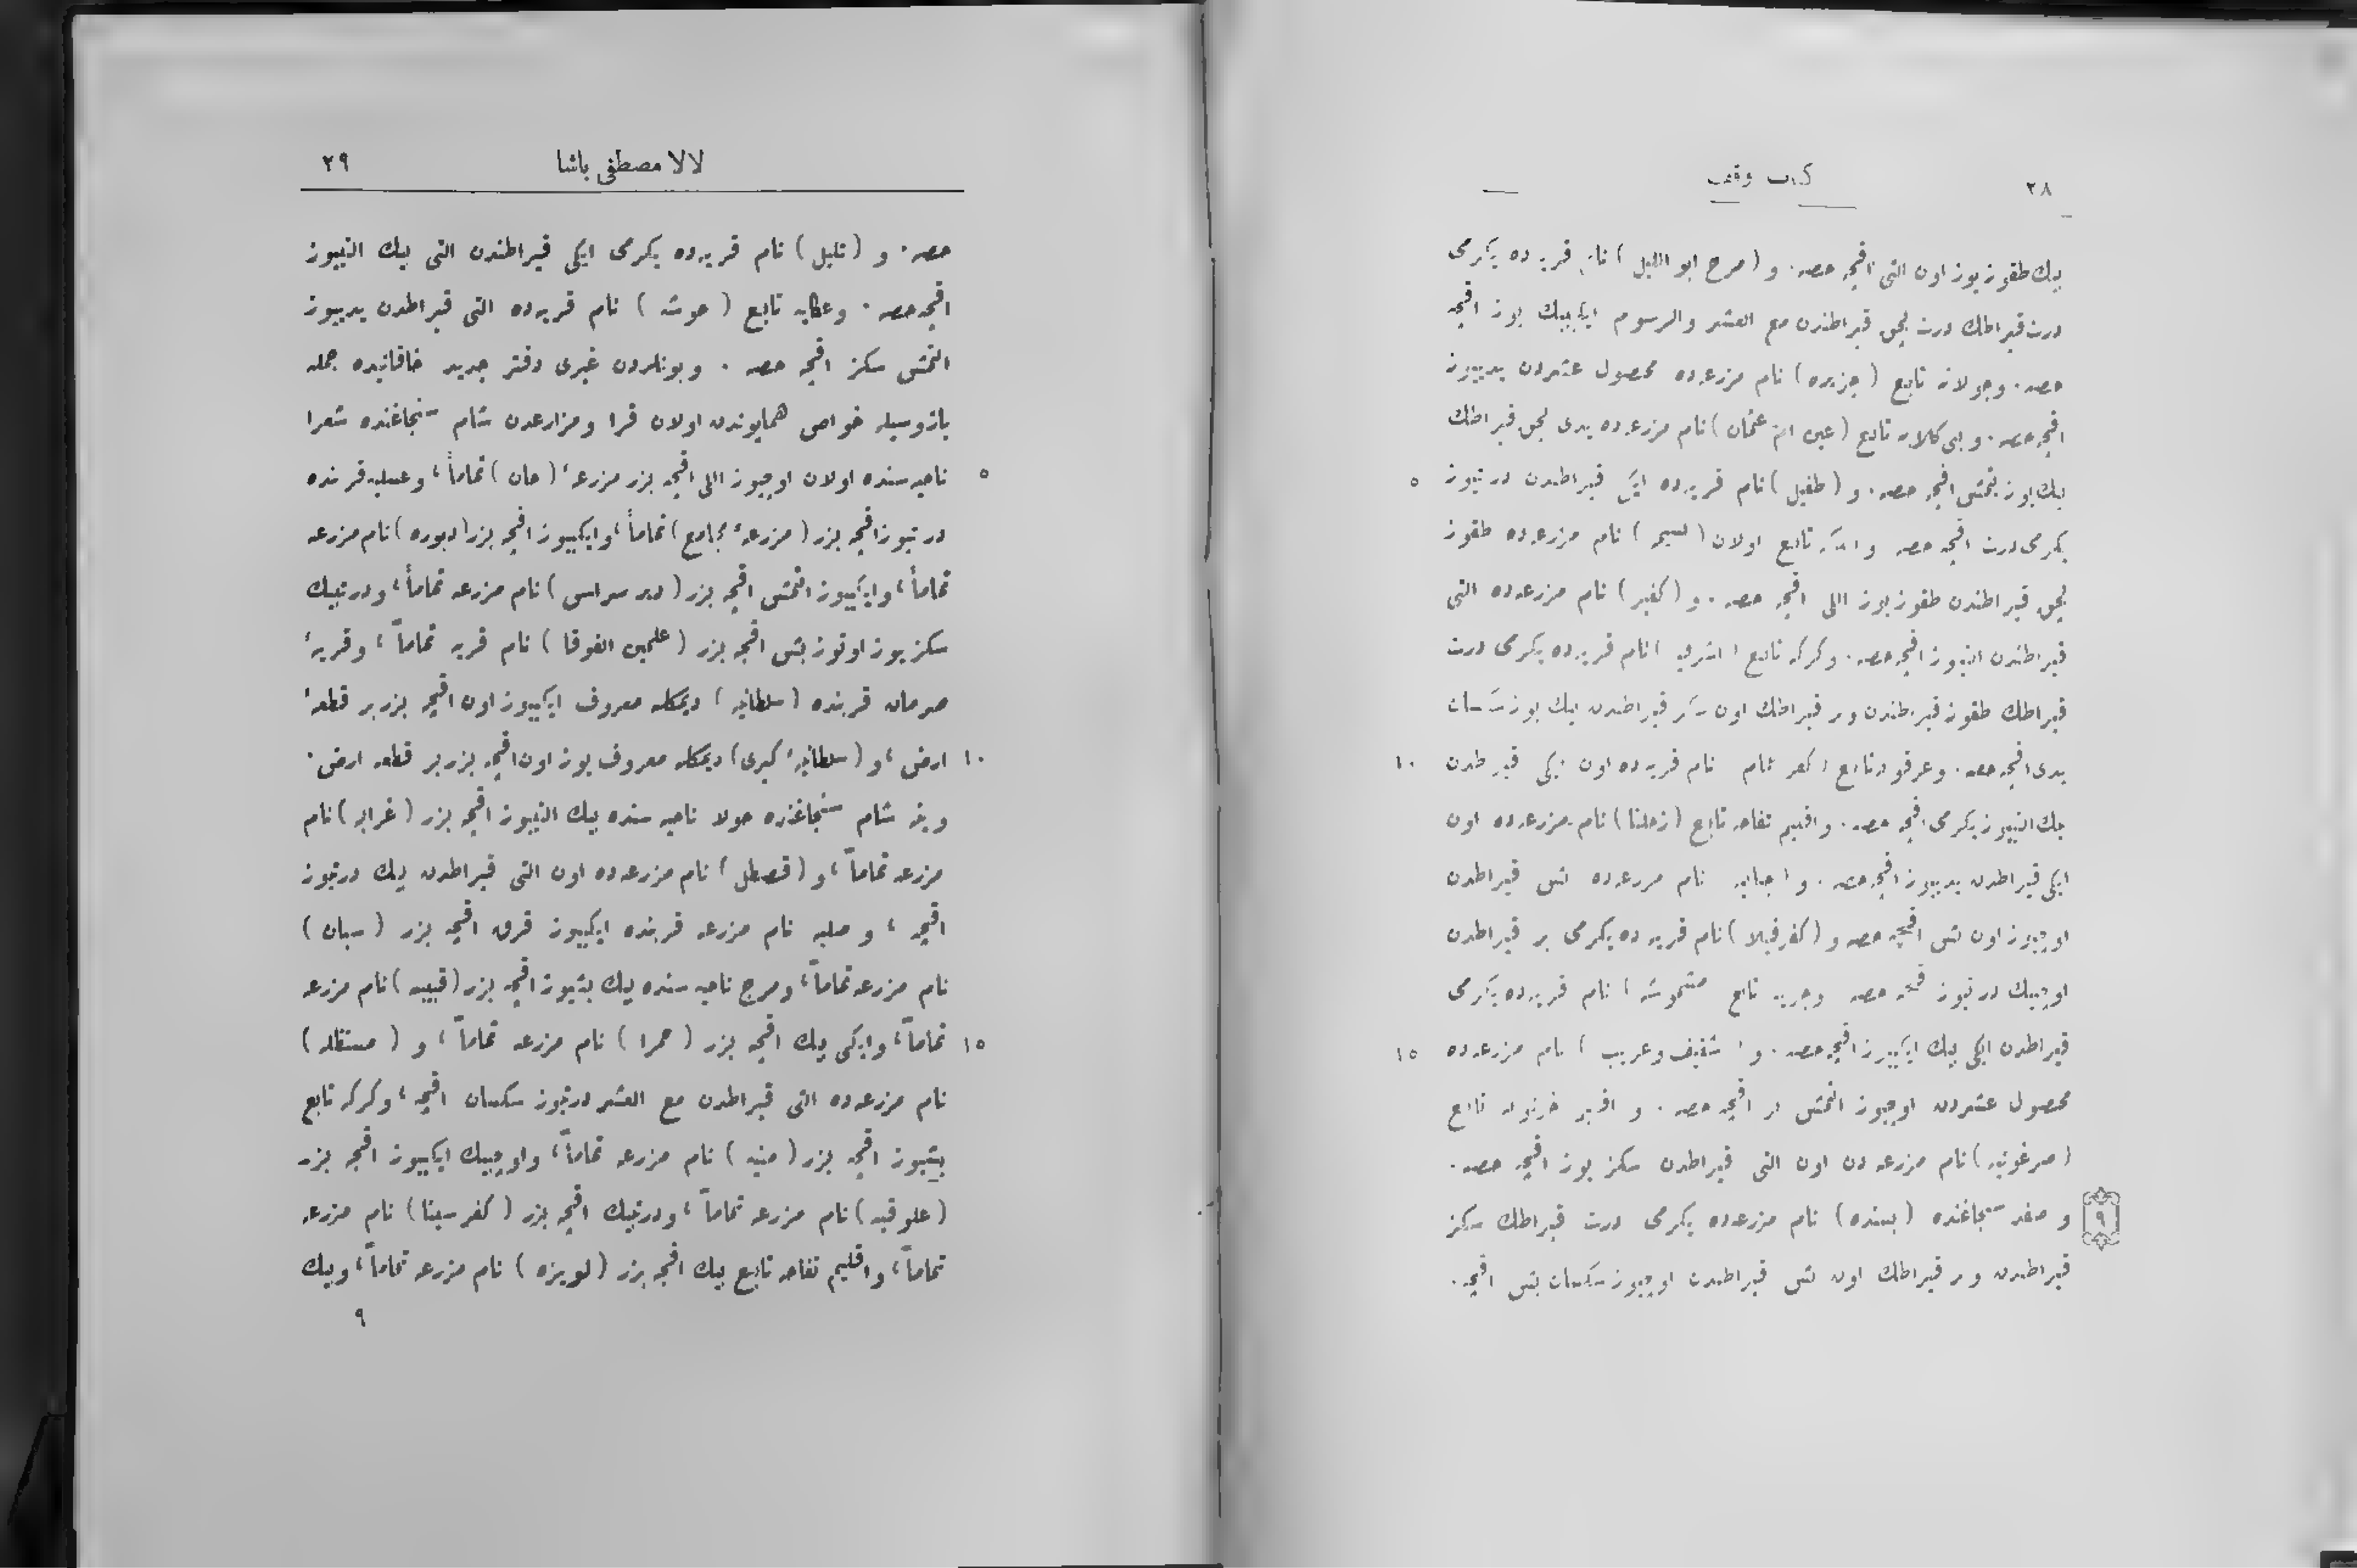 ٢٨
كتاب وقف
بيك طقوز يوز اون التى اقچه حصه ٠ و ( مرج ابو الليل ) نام قريه ده يكرمى
درت قيراطك درت بچق قيراطندن مع العشر والرسوم ايكيبيك يوز اقچه
حصه ٠ وجولانه تابع ( جزيره ) نام مزرعه ده محصول عشردن يدييوز
اقچه حصه ٠ و بنى كلابه تابع ( عين ام عثمان ) نام مزرعه ده يدى بچق قيراطك
٥
بيك يوز يتمش اقچه حصه ٠ و ( طفيل ) نام قريه ده ايكى قيراطدن درتيوز
يكرمى درت اقچه حصه و تابع اولان ( ) نام مزرعه ده طقوز
بچق قيراطندن طقوز يوز اللى اقچه حصه ٠ و ( كفير ) نام مزرعه ده التى
قيراطندن التيوز اقچه حصه ٠ وكركه تابع ( اشرفيه ) نام قريه ده يكرمى درت
قيراطك طقوز قيراطندن وبر قيراطك اون سكز قيراطدن بيك يوز سكسان
١٠
يدى اقچه حصه ٠ وعرقوبه تابع ( كفر ) نام قريه ده اون ايكى قيراطدن
بيك التيوز يكرمى اقچه حصه ٠ و اقليم تفاحه تابع ( زحلتا ) نام مزرعه ده اون
ايكى قيراطدن يدييوز اقچه حصه ٠ و ( جبابه ) نام مزرعه ده بش قيراطدن
اوچيوز اون بش اقچه حصه و ( كفرفيلا ) نام قريه ده يكرمى بر قيراطدن
اوچبيك درتيوز اقچه حصه وجريه تابع ( مشموشه ) نام قريه ده يكرمى
١٥
قيراطدن ايكى بيك ايكييوز اقچه حصه ٠ و ( شقيف وعريب ) نام مزرعه ده
محصول عشردن اوچيوز التمش بر اقچه حصه ٠ و اقليم خرنوبه تابع
( مرغونيه ) نام مزرعه دن اون التى قيراطدن سكز يوز اقچه حصه ٠
٩
و صفد سنجاغنده ( بسنده ) نام مزرعه ده يكرمى درت قيراطك سكز
قيراطدن وبر قيراطك اون بش قيراطدن اوچيوز سكسان بش اقچه ٠
لالا مصطفى پاشا
٢٩
حصه ٠ و ( تليل ) نام قريه ده يكرمى ايكى قيراطندن التى بيك التيوز
اقچه حصه ٠ وعكايه تابع ( حوشه ) نام قريه ده التى قيراطدن يدييوز
التمش سكز اقچه حصه ٠ وبونلردن غيرى دفتر جديد خاقانيده جمله
يازوسيله خواص همايوندن اولان قرا ومزارعدن شام سنجاغنده شعرا
٥
ناحيه سنده اولان اوچيوز اللى اقچه يزر مزرعهٔ ( حان ) تماماً ، وعسليه قربنده
درتيوز اقچه يزر ( مزرعهٔ مجامع ) تماماً ، وايكييوز اقچه يزر ( دبوره ) نام مزرعه
تماماً ، وايكييوز التمش اقچه يزر ( دير سراس ) نام مزرعه تماماً ، ودرتبيك
سكز يوز اوتوز بش اقچه يزر ( علمين الفوقا ) نام قريه تماماً ، وقريهٔ
صرمان قربنده ( سلطانيه ) ديمكله معروف ايكييوز اون اقچه يزر بر قطعهٔ
١٠
ارض ، و ( سلطانيهٔ كبرى ) ديمكله معروف يوز اون اقچه يزر بر قطعه ارض ٠
وينه شام سنجاغنده حولا ناحيه سنده بيك التيوز اقچه يزر ( غرابه ) نام
مزرعه تماماً ، و ( قصطل ) نام مزرعه ده اون التى قيراطدن بيك درتيوز
اقچه ، و صلبه نام مزرعه قربنده ايكييوز قرق اقچه يزر ( سبان )
نام مزرعه تماماً ، ومرج ناحيه سنده بيك بشيوز اقچه يزر ( قبيبه ) نام مزرعه
١٥
تماماً ، وايكى بيك اقچه يزر ( حمرا ) نام مزرعه تماماً ، و ( مستقله )
نام مزرعه ده التى قيراطدن مع العشر درتيوز سكسان اقچه ، وكركه تابع
بشيوز اقچه يزر ( منيه ) نام مزرعه تماماً ، واوچبيك ايكييوز اقچه يزر
( علوقيه ) نام مزرعه تماماً ، ودرتبيك اقچه يزر ( كفر سبنا ) نام مزرعه
تماماً ، واقليم تفاحه تابع بيك اقچه يزر ( لويزه ) نام مزرعه تماماً ، وبيك
٩